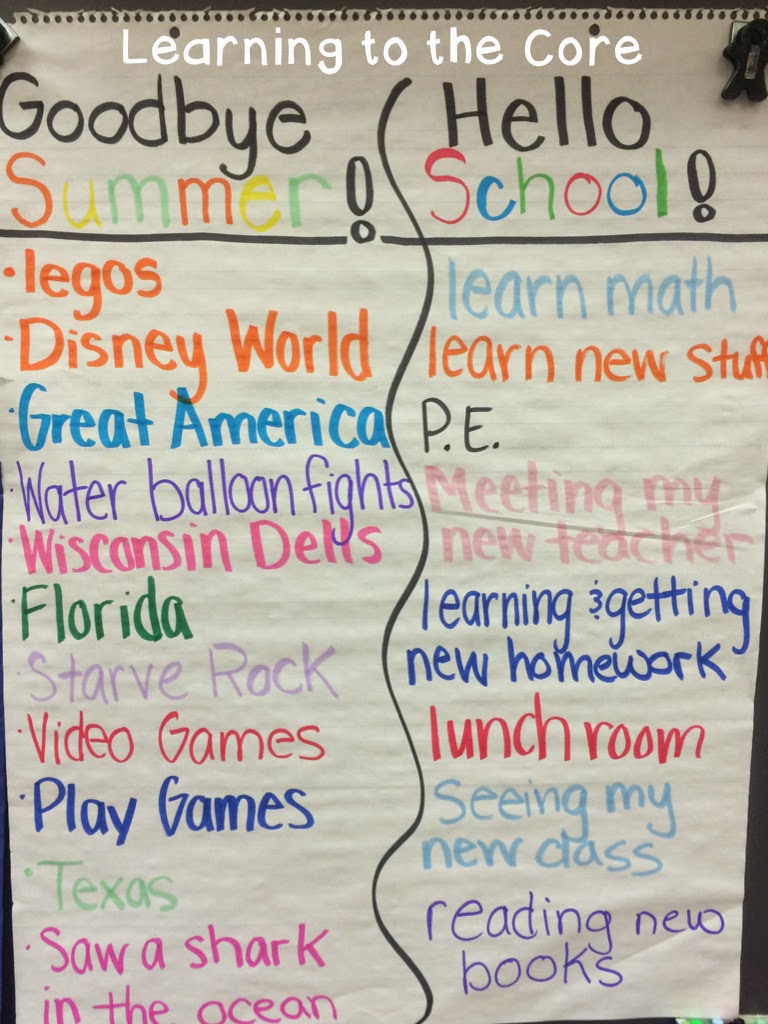 Learning to the Core
Goodbye
Summer!
· legos
· Disney World
· Great America
· Water balloon fights
· Wisconsin Dells
· Florida
· Starve Rock
· Video Games
· Play Games
· Texas
· Saw a shark
in the ocean
Hello
School!
learn math
learn new stuff
P.E.
Meeting my
new teacher
learning & getting
new homework
lunch room
Seeing my
new class
reading new
books